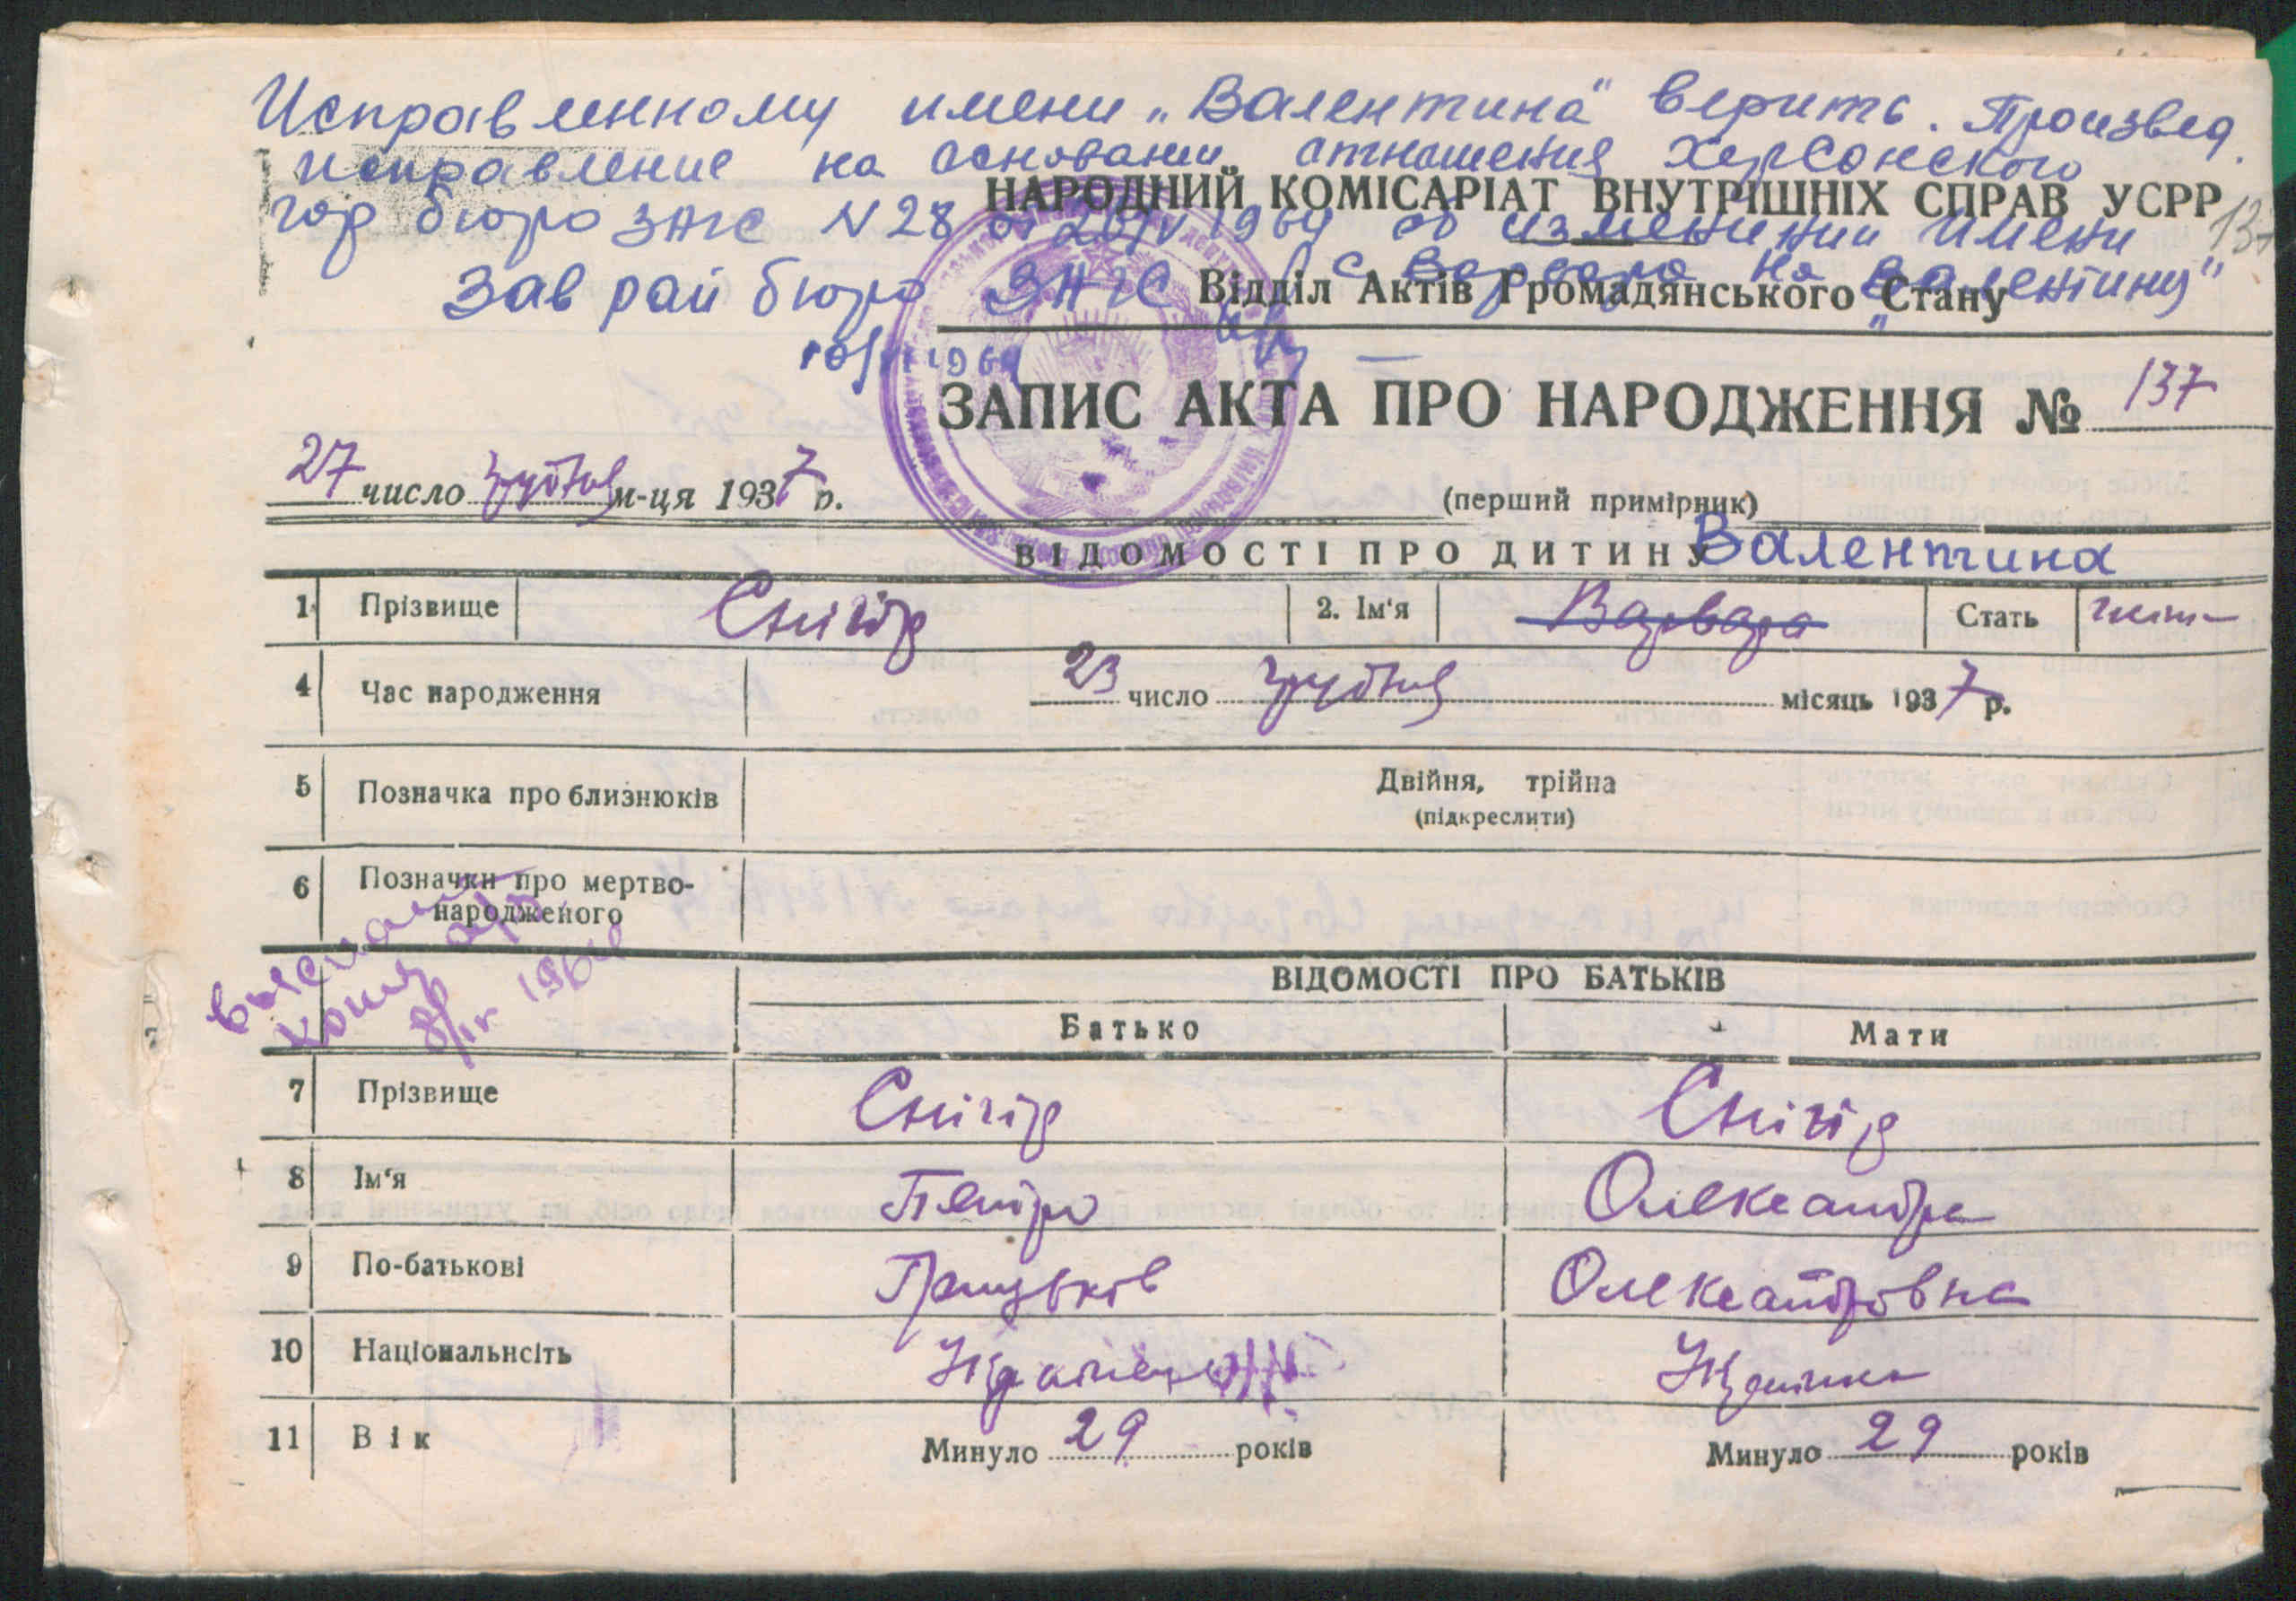 Исправленному имени „Валентина" верить. Произвед.
исправление на основании отношения Херсонского
гор бюро ЗАГС N 28 от 20/IV 1964 об изменении имени
с Варвара на „Валентину"
Зав рай бюро ЗАГС
1964
НАРОДНИЙ КОМІСАРІАТ ВНУТРІШНІХ СПРАВ УСРР
137
Відділ Актів Громадянського Стану
ЗАПИС АКТА ПРО НАРОДЖЕННЯ № 137
27 число грудня м-ця 1937 р.
(перший примірник)
ВІДОМОСТІ ПРО ДИТИНУ
Валентина
1 Прізвище Снігір 2. Ім'я Варвара Стать жіт-
4 Час народження 23 число грудня місяць 1937 р.
5 Позначка про близнюків Двійня, трійна
(підкреслити)
6 Позначки про мертво-
народженого
Выслано
копия
8/IV 1964
ВІДОМОСТІ ПРО БАТЬКІВ
Батько Мати
7 Прізвище Снігір Снігір
8 Ім'я Петро Олександра
9 По-батькові Грицьків Олександровна
10 Національнсіть
11 Вік Минуло 29 років Минуло 29 років